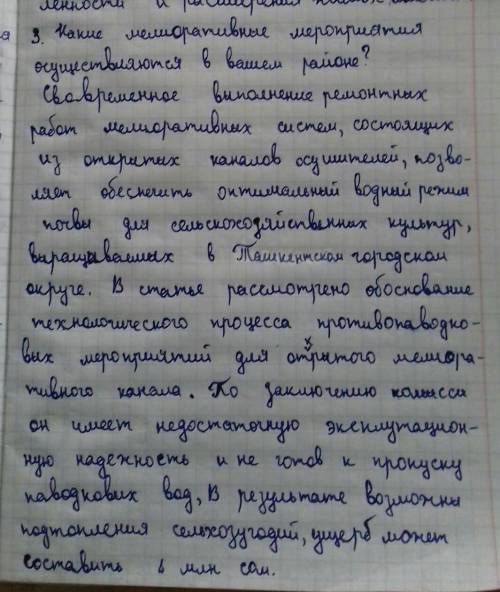 ленности и расширения
3. Какие мелиоративные мероприятия
осуществляются в вашем районе?
Своевременное выполнение ремонтных
работ мелиоративных систем, состоящих
из открытых каналов осушителей, позво-
ляет обеспечить оптимальный водный режим
почвы для сельскохозяйственных культур,
выращиваемых в Ташкентском городском
округе. В статье рассмотрено обоснование
технологического процесса противопаводко-
вых мероприятий для открытого мелиора-
тивного канала. По заключению комиссии
он имеет недостаточную эксплутацион-
ную надежность и не готов к пропуску
паводковых вод, В результате возможны
подтопления сельхозугодий, ущерб может
составить 6 млн сом.